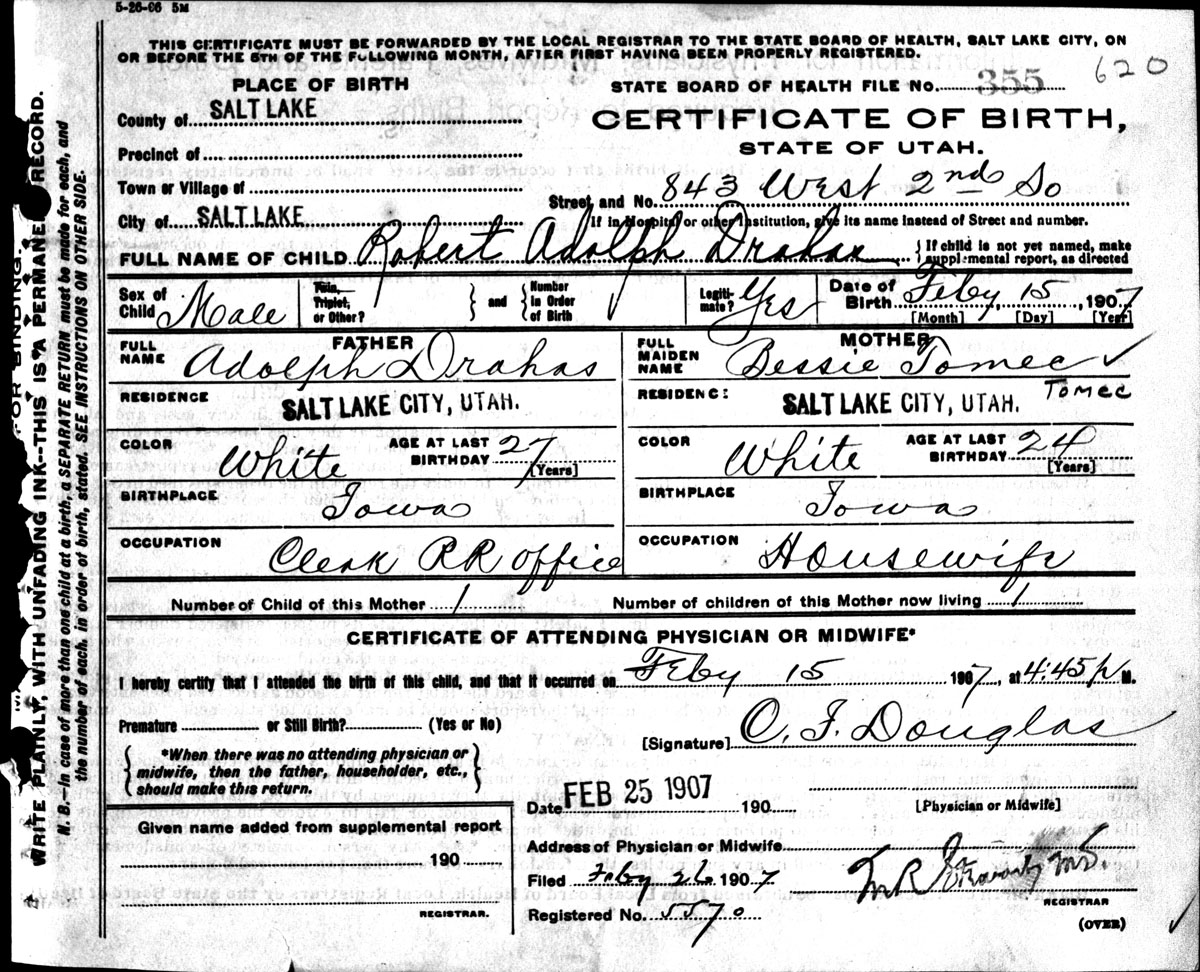 5-26-06 5M
THIS CERTIFICATE MUST BE FORWARDED BY THE LOCAL REGISTRAR TO THE STATE BOARD OF HEALTH, SALT LAKE CITY, ON
OR BEFORE THE 5TH OF THE FOLLOWING MONTH, AFTER FIRST HAVING BEEN PROPERLY REGISTERED.
620
PLACE OF BIRTH
STATE BOARD OF HEALTH FILE NO. 355
County of SALT LAKE
CERTIFICATE OF BIRTH,
Precinct of
STATE OF UTAH.
Town or Village of
Street and No. 843 West 2nd So
City of SALT LAKE
If in Hospital or other Institution, give its name instead of Street and number.
FULL NAME OF CHILD Robert Adolph Drahos
{ If child is not yet named, make
supplemental report, as directed
Sex of Child Male
Twin, Triplet, or Other? } and { Number in Order of Birth
Legitimate? Yes
Date of Birth Feby 15, 1907
[Month] [Day] [Year]
FATHER
FULL NAME Adolph Drahos
RESIDENCE SALT LAKE CITY, UTAH.
COLOR White AGE AT LAST BIRTHDAY 27 [Years]
BIRTHPLACE Iowa
OCCUPATION Clerk RR office
MOTHER
FULL MAIDEN NAME Bessie Tomec ✓
RESIDENCE: SALT LAKE CITY, UTAH. Tomec
COLOR White AGE AT LAST BIRTHDAY 24 [Years]
BIRTHPLACE Iowa
OCCUPATION Housewife
Number of Child of this Mother 1 Number of children of this Mother now living 1
CERTIFICATE OF ATTENDING PHYSICIAN OR MIDWIFE*
I hereby certify that I attended the birth of this child, and that it occurred on Feby 15 1907, at 4:45 p M.
Premature or Still Birth? (Yes or No)
[Signature] C. F. Douglas
*When there was no attending physician or
midwife, then the father, householder, etc.,
should make this return.
Date FEB 25 1907 190
[Physician or Midwife]
Given name added from supplemental report
190
REGISTRAR.
Address of Physician or Midwife
Filed Feby 26 1907
REGISTRAR
Registered No. 5570
(OVER)
WRITE PLAINLY, WITH UNFADING INK--THIS IS A PERMANENT RECORD.
N. B.--In case of more than one child at a birth, a SEPARATE RETURN must be made for each, and
the number of each, in order of birth, stated. SEE INSTRUCTIONS ON OTHER SIDE.
FOR BINDING.